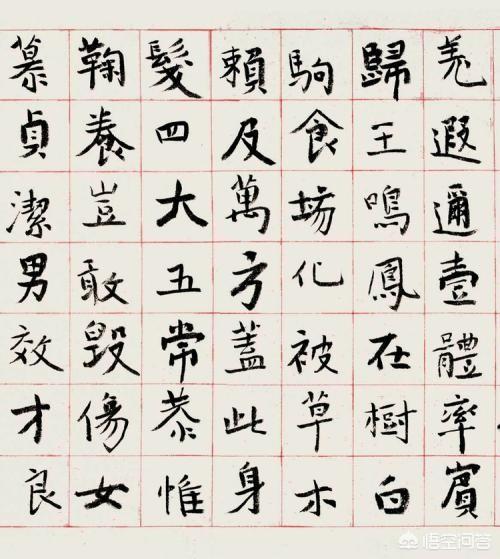 羌遐邇壹體率賓
歸王鳴鳳在樹白
駒食場化被草木
賴及萬方蓋此身
髮四大五常恭惟
鞠養豈敢毀傷女
慕貞潔男效才良
悟空问答